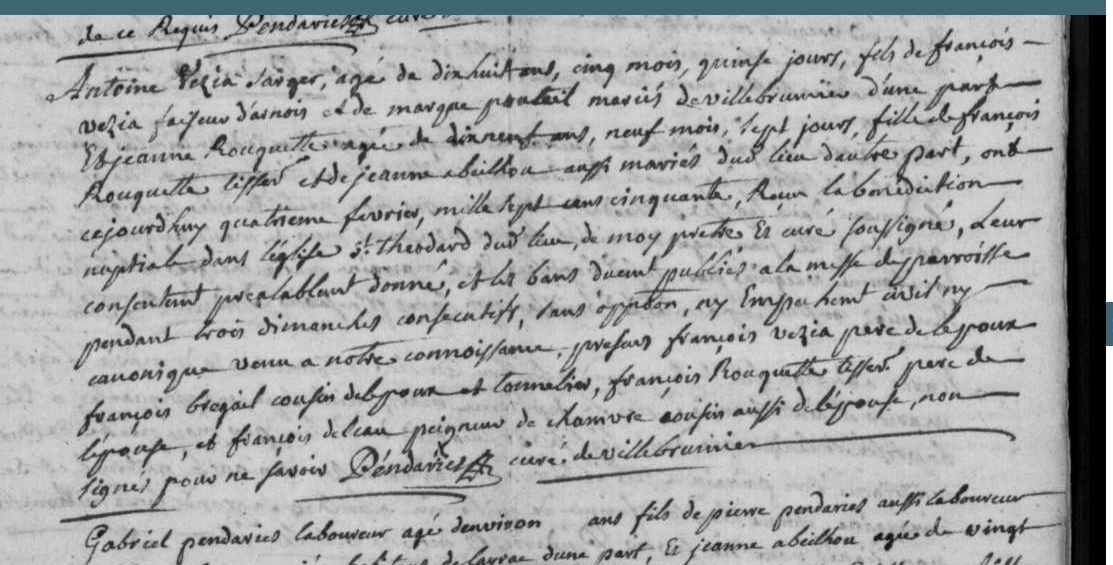 de ce Requis Pendaries curé
Antoine Vezia sarger, agé de dixhuit ans, cinq mois, quinse jours, fils de françois
vezia faiseur d'arnois et de marque pouteil mariés de villebrumier d'une part
Et jeanne Rouquette agée de dixneuf ans, neuf mois, sept jours, fille de françois
Rouquette tisser et de jeanne abeilhou aussi mariés dud lieu dautre part, ont
cejourdhuy quatrieme fevrier, mille sept cens cinquante, Receu la benediction
nuptiale dans l'église st. theodard dud lieu, de moy pretre Et curé soussigné, Leur
consentemt préalablemt donné, et les bans duemt publiés a la messe de parroisse
pendant trois dimanches consecutifs, sans oppôon, ny Empechemt civil ny
canonique venu a notre connoissance, presens françois vezia pere de lepoux
françois bregail cousin de lepoux et tonnelier, françois Rouquette tisser pere de
lépouse, et françois delcau peigneur de chamvre cousin aussi de lépouse, non
signés pour ne savoir Pendaries curé de villebrumier
Gabriel pendaries laboureur agé denviron ans fils de pierre pendaries aussi laboureur
de larrae dune part, Et jeanne abeilhou agée de vingt